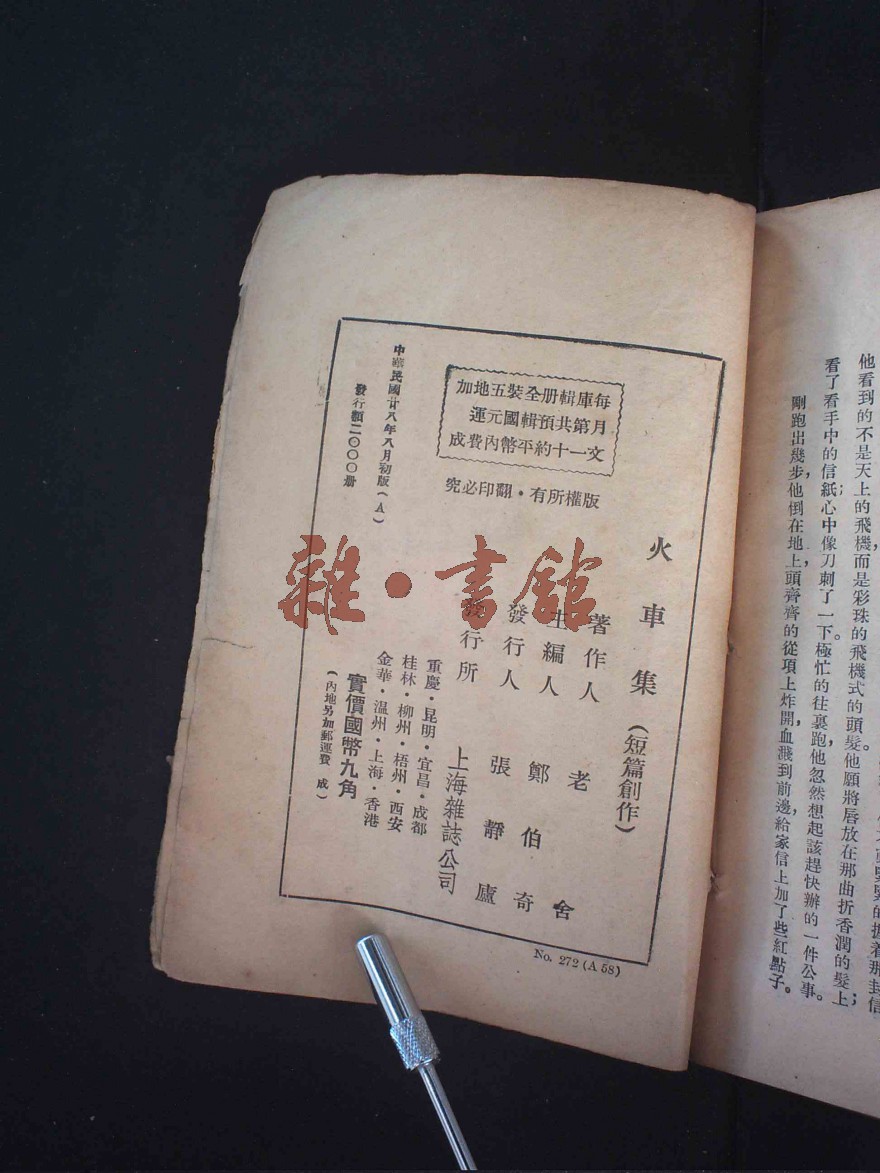 的握着那封信
他看到的不是天上的飛機，而是彩珠的飛機式的頭髮。他願將唇放在那曲折香潤的髮上；
看了看手中的信紙；心中像刀刺了一下。極忙的往裏跑，他忽然想起該趕快辦的一件公事。
剛跑出幾步，他倒在地上，頭齊齊的從項上炸開，血濺到前邊，給家信上加了些紅點子。
每月文
庫第一
輯共十
册預約
全輯平
裝國幣
五元內
地運費
加成
版權所有・翻印必究
火車集（短篇創作）
著作人 老舍
主編人 鄭伯奇
發行人 張靜廬
發行所 上海雜誌公司
重慶・昆明・宜昌・成都
桂林・柳州・梧州・西安
金華・溫州・上海・香港
實價國幣九角
（內地另加郵運費 成）
中華民國廿八年八月初版（A）
發行額二〇〇〇册
No. 272 (A 58)
雜・書館